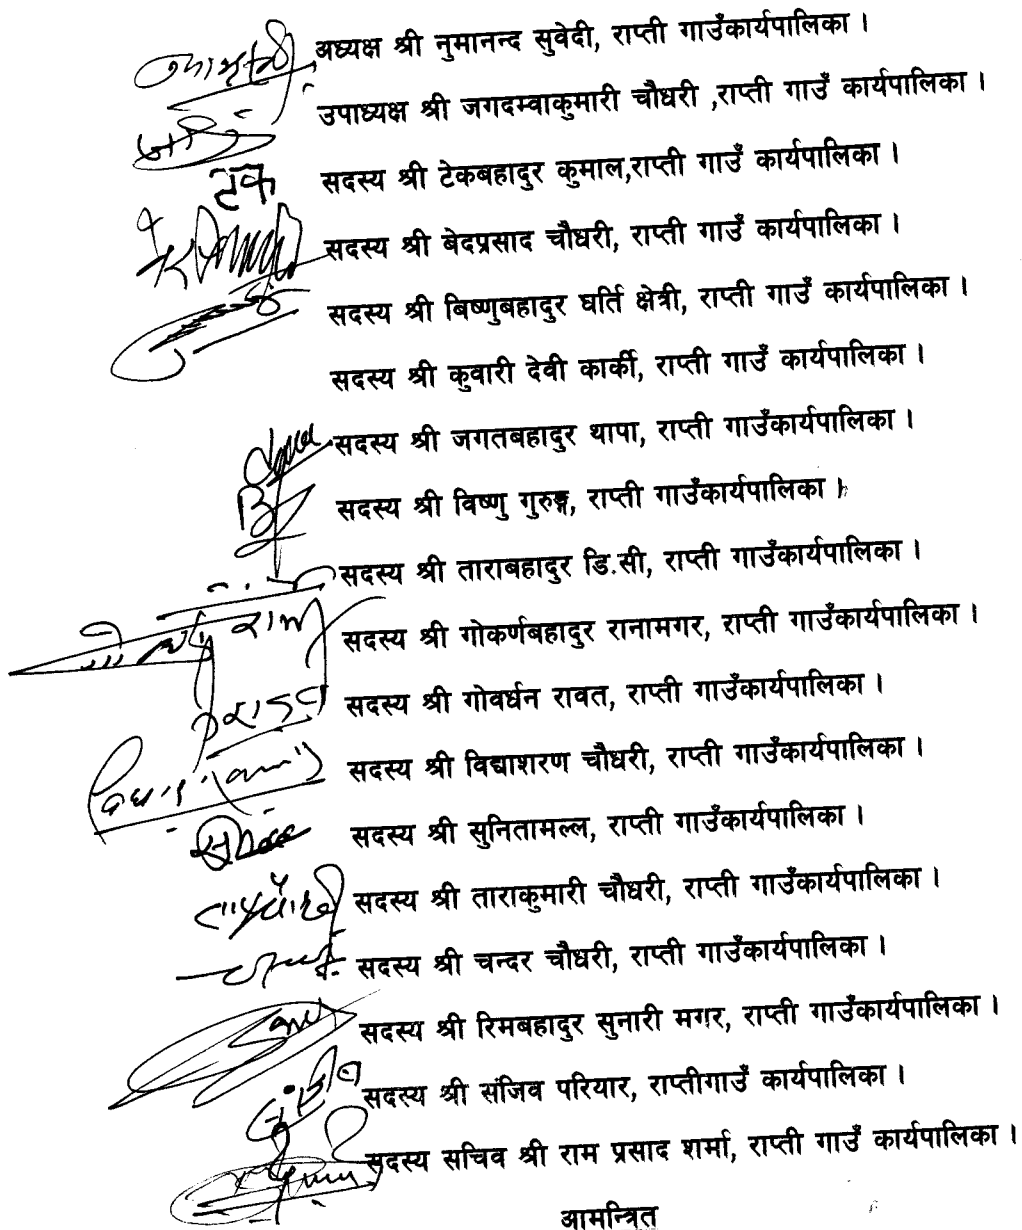 अध्यक्ष श्री नुमानन्द सुवेदी, राप्ती गाउँकार्यपालिका ।
उपाध्यक्ष श्री जगदम्वाकुमारी चौधरी ,राप्ती गाउँ कार्यपालिका ।
टेक सदस्य श्री टेकबहादुर कुमाल,राप्ती गाउँ कार्यपालिका ।
सदस्य श्री बेदप्रसाद चौधरी, राप्ती गाउँ कार्यपालिका ।
सदस्य श्री बिष्णुबहादुर घर्ति क्षेत्री, राप्ती गाउँ कार्यपालिका ।
सदस्य श्री कुवारी देवी कार्की, राप्ती गाउँ कार्यपालिका ।
सदस्य श्री जगतबहादुर थापा, राप्ती गाउँकार्यपालिका ।
सदस्य श्री विष्णु गुरुङ्ग, राप्ती गाउँकार्यपालिका ।
सदस्य श्री ताराबहादुर डि.सी, राप्ती गाउँकार्यपालिका ।
सदस्य श्री गोकर्णबहादुर रानामगर, राप्ती गाउँकार्यपालिका ।
सदस्य श्री गोवर्धन रावत, राप्ती गाउँकार्यपालिका ।
सदस्य श्री विद्याशरण चौधरी, राप्ती गाउँकार्यपालिका ।
सदस्य श्री सुनितामल्ल, राप्ती गाउँकार्यपालिका ।
सदस्य श्री ताराकुमारी चौधरी, राप्ती गाउँकार्यपालिका ।
सदस्य श्री चन्दर चौधरी, राप्ती गाउँकार्यपालिका ।
सदस्य श्री रिमबहादुर सुनारी मगर, राप्ती गाउँकार्यपालिका ।
सदस्य श्री संजिव परियार, राप्तीगाउँ कार्यपालिका ।
सदस्य सचिव श्री राम प्रसाद शर्मा, राप्ती गाउँ कार्यपालिका ।
आमन्त्रित